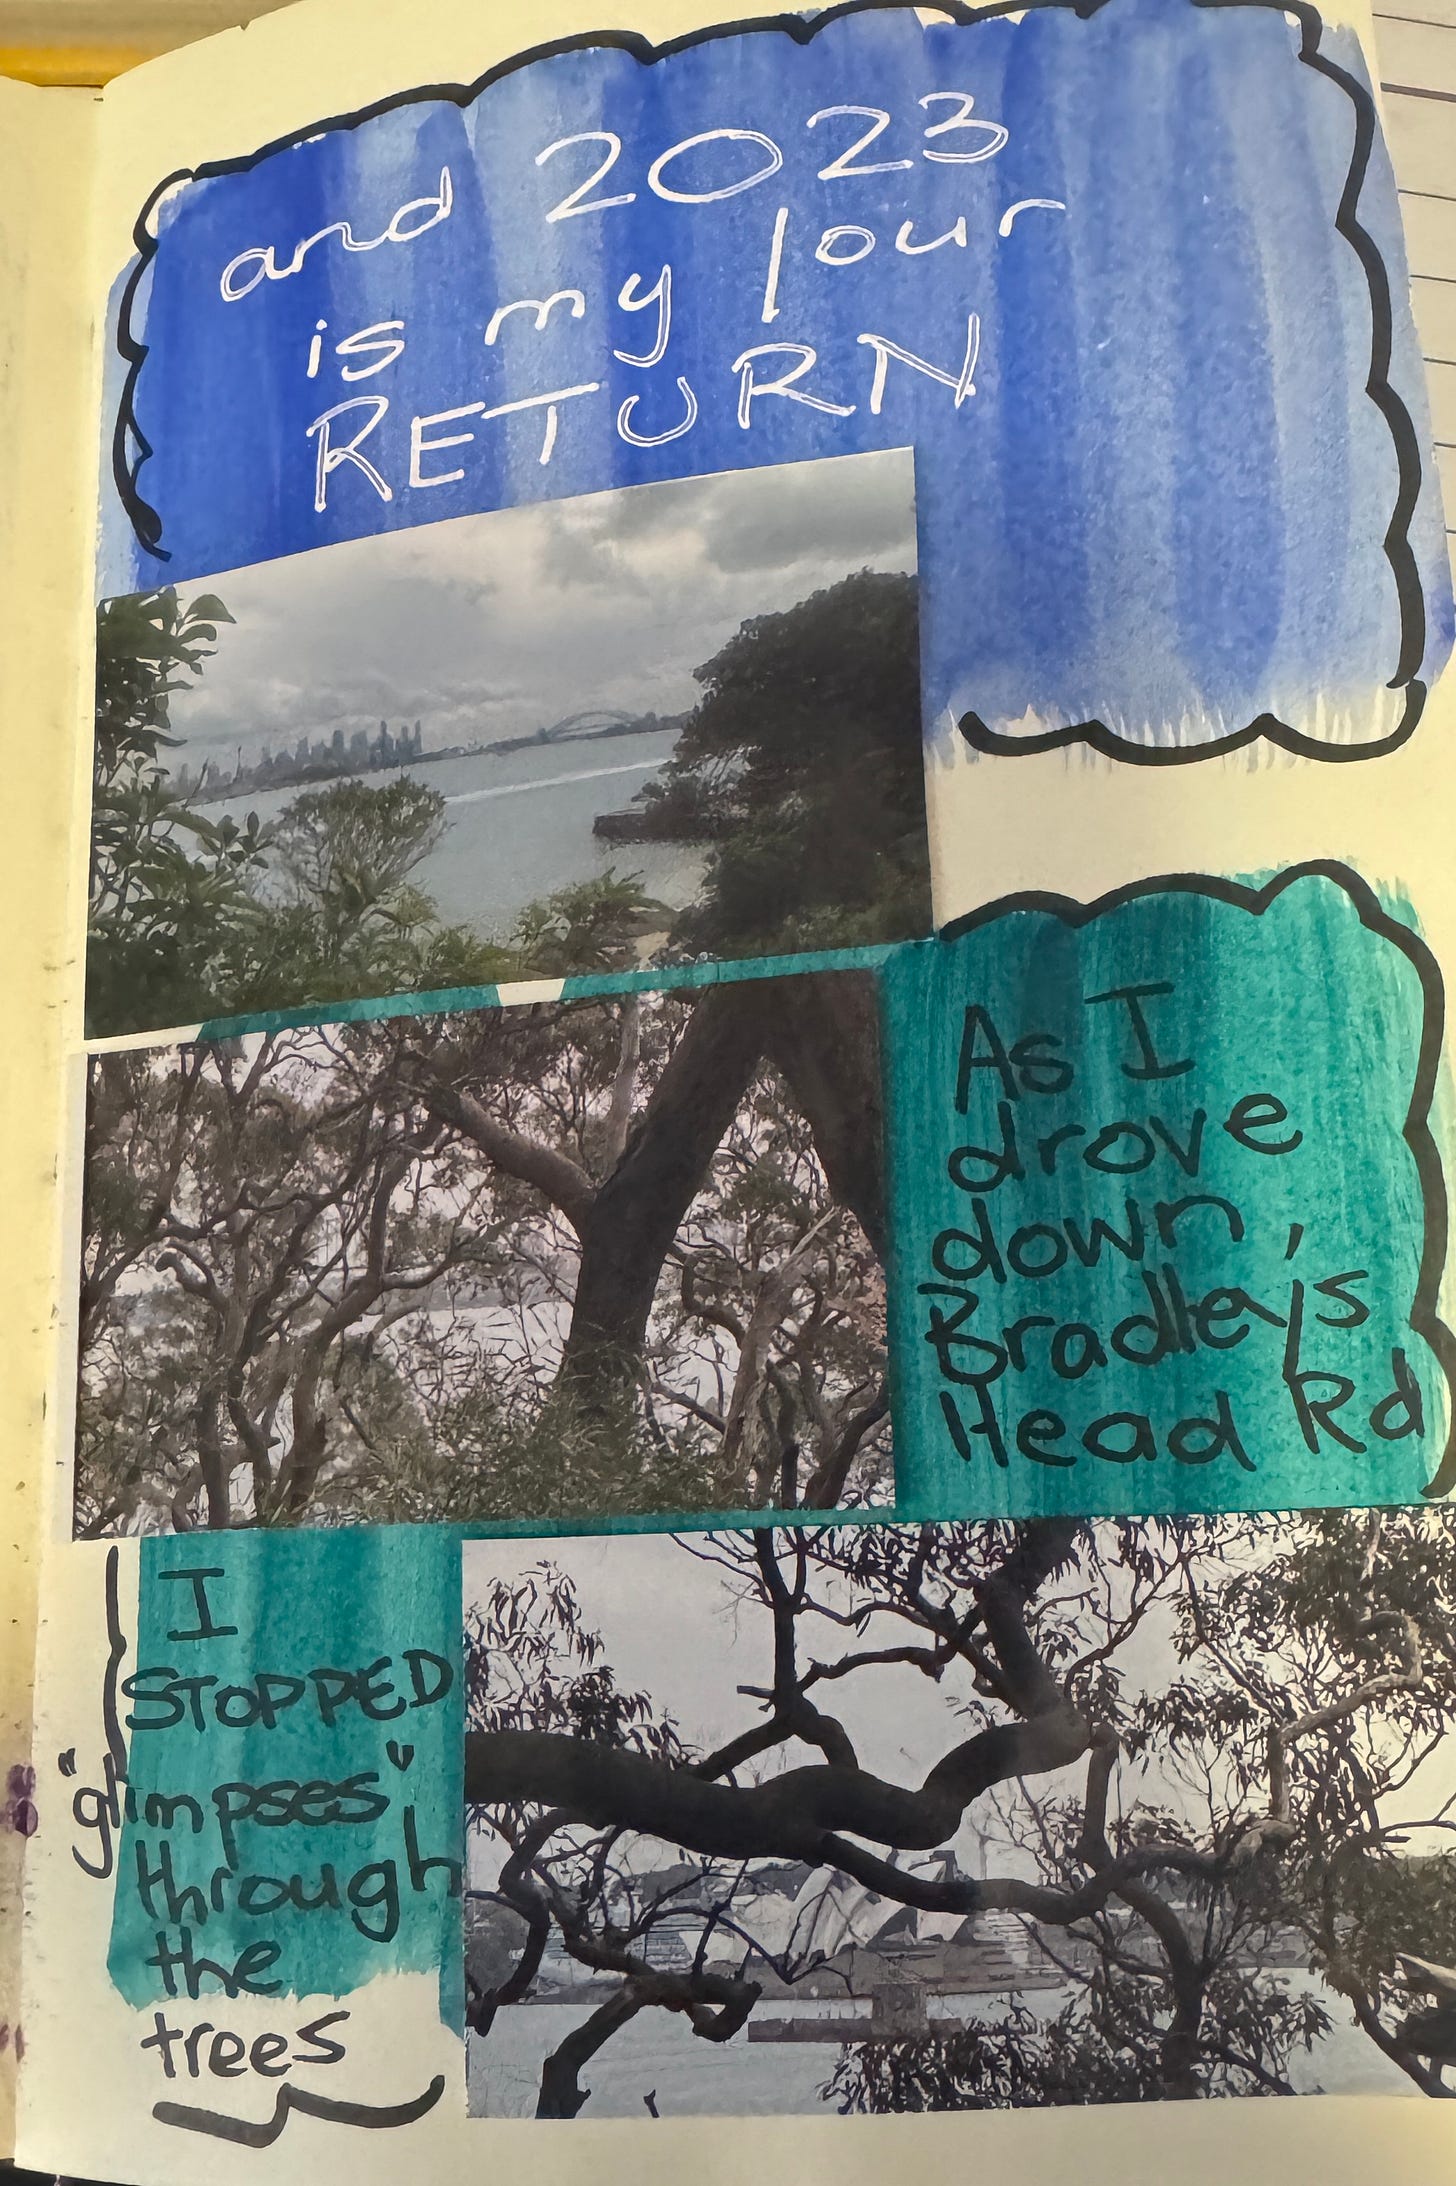 and 2023
is my lour
RETURN
As I
drove
down
Bradley's
Head Rd
I
STOPPED
"glimpses"
through
the
trees